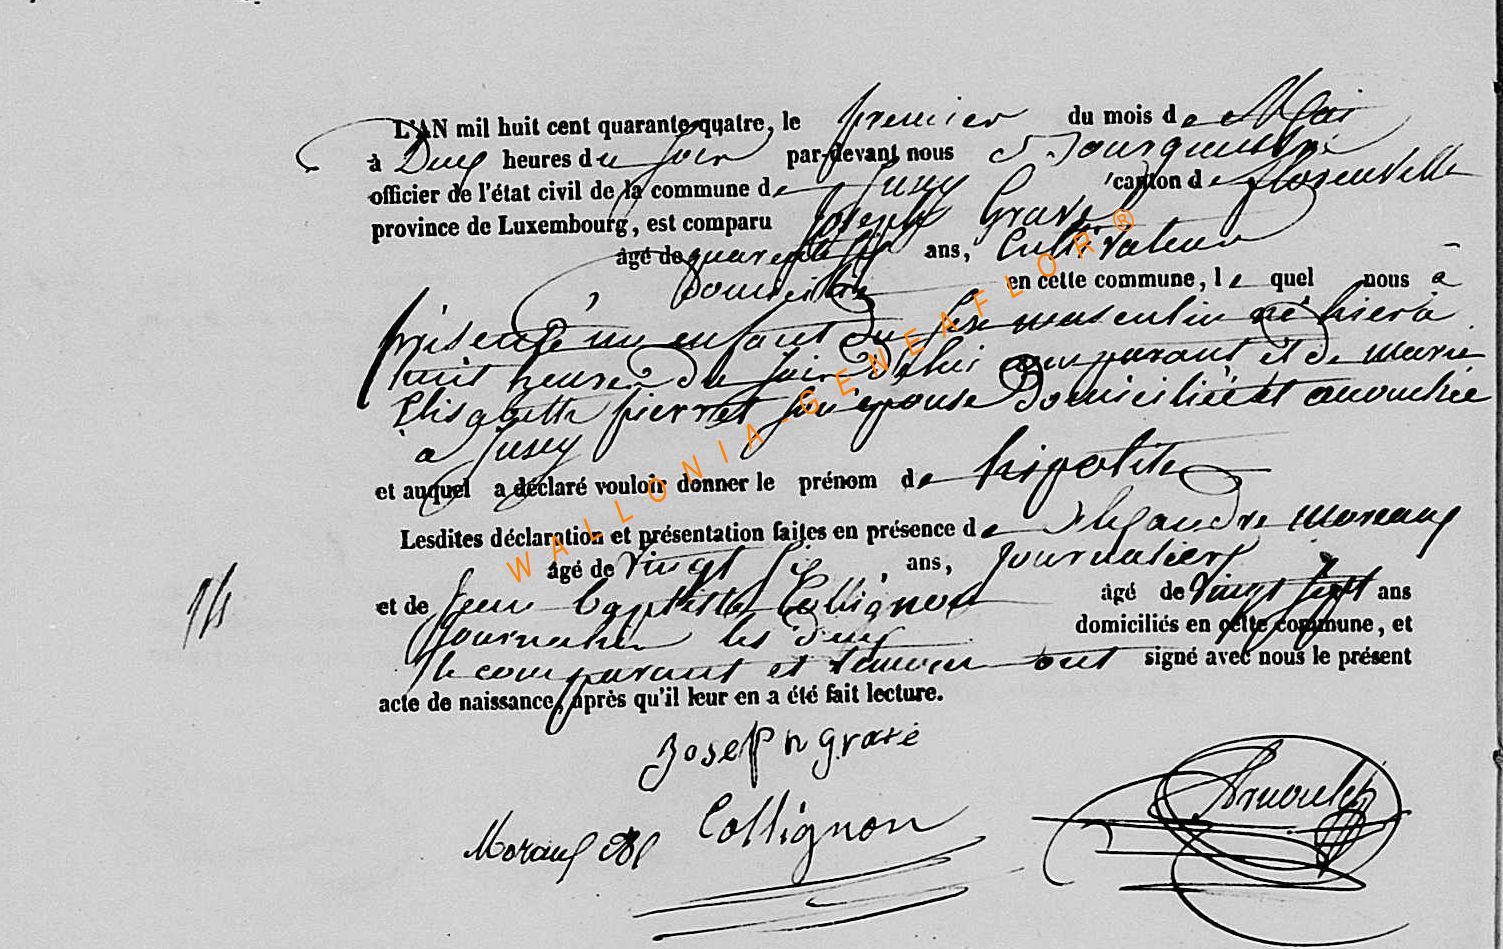 L'AN mil huit cent quarante-quatre, le premier du mois de Mai
à Deux heures du soir par-devant nous Bourguemestre
officier de l'état civil de la commune de Jusey canton de florenville
province de Luxembourg, est comparu joseph Gravé
âgé de quarante six ans, Cultivateur
Domicilié en cette commune, le quel nous à
présenté un enfant du sexe masculin né hier à
huit heures du soir de lui comparant et de marie
Elisabeth pierret son épouse Domiciliée et accouchée
à Jusey
et auquel a déclaré vouloir donner le prénom de hipolite
Lesdites déclaration et présentation faites en présence de Alexandre moreaux
âgé de vingt six ans, journalier
et de jean Baptiste Collignon âgé de vingt sept ans
journalier les deux domiciliés en cette commune, et
le comparant et témoin ont signé avec nous le présent
acte de naissance, après qu'il leur en a été fait lecture.
14
Joseph gravé
Collignon
Moraux
Arnould
WALLONIA-GENEAFLOR®